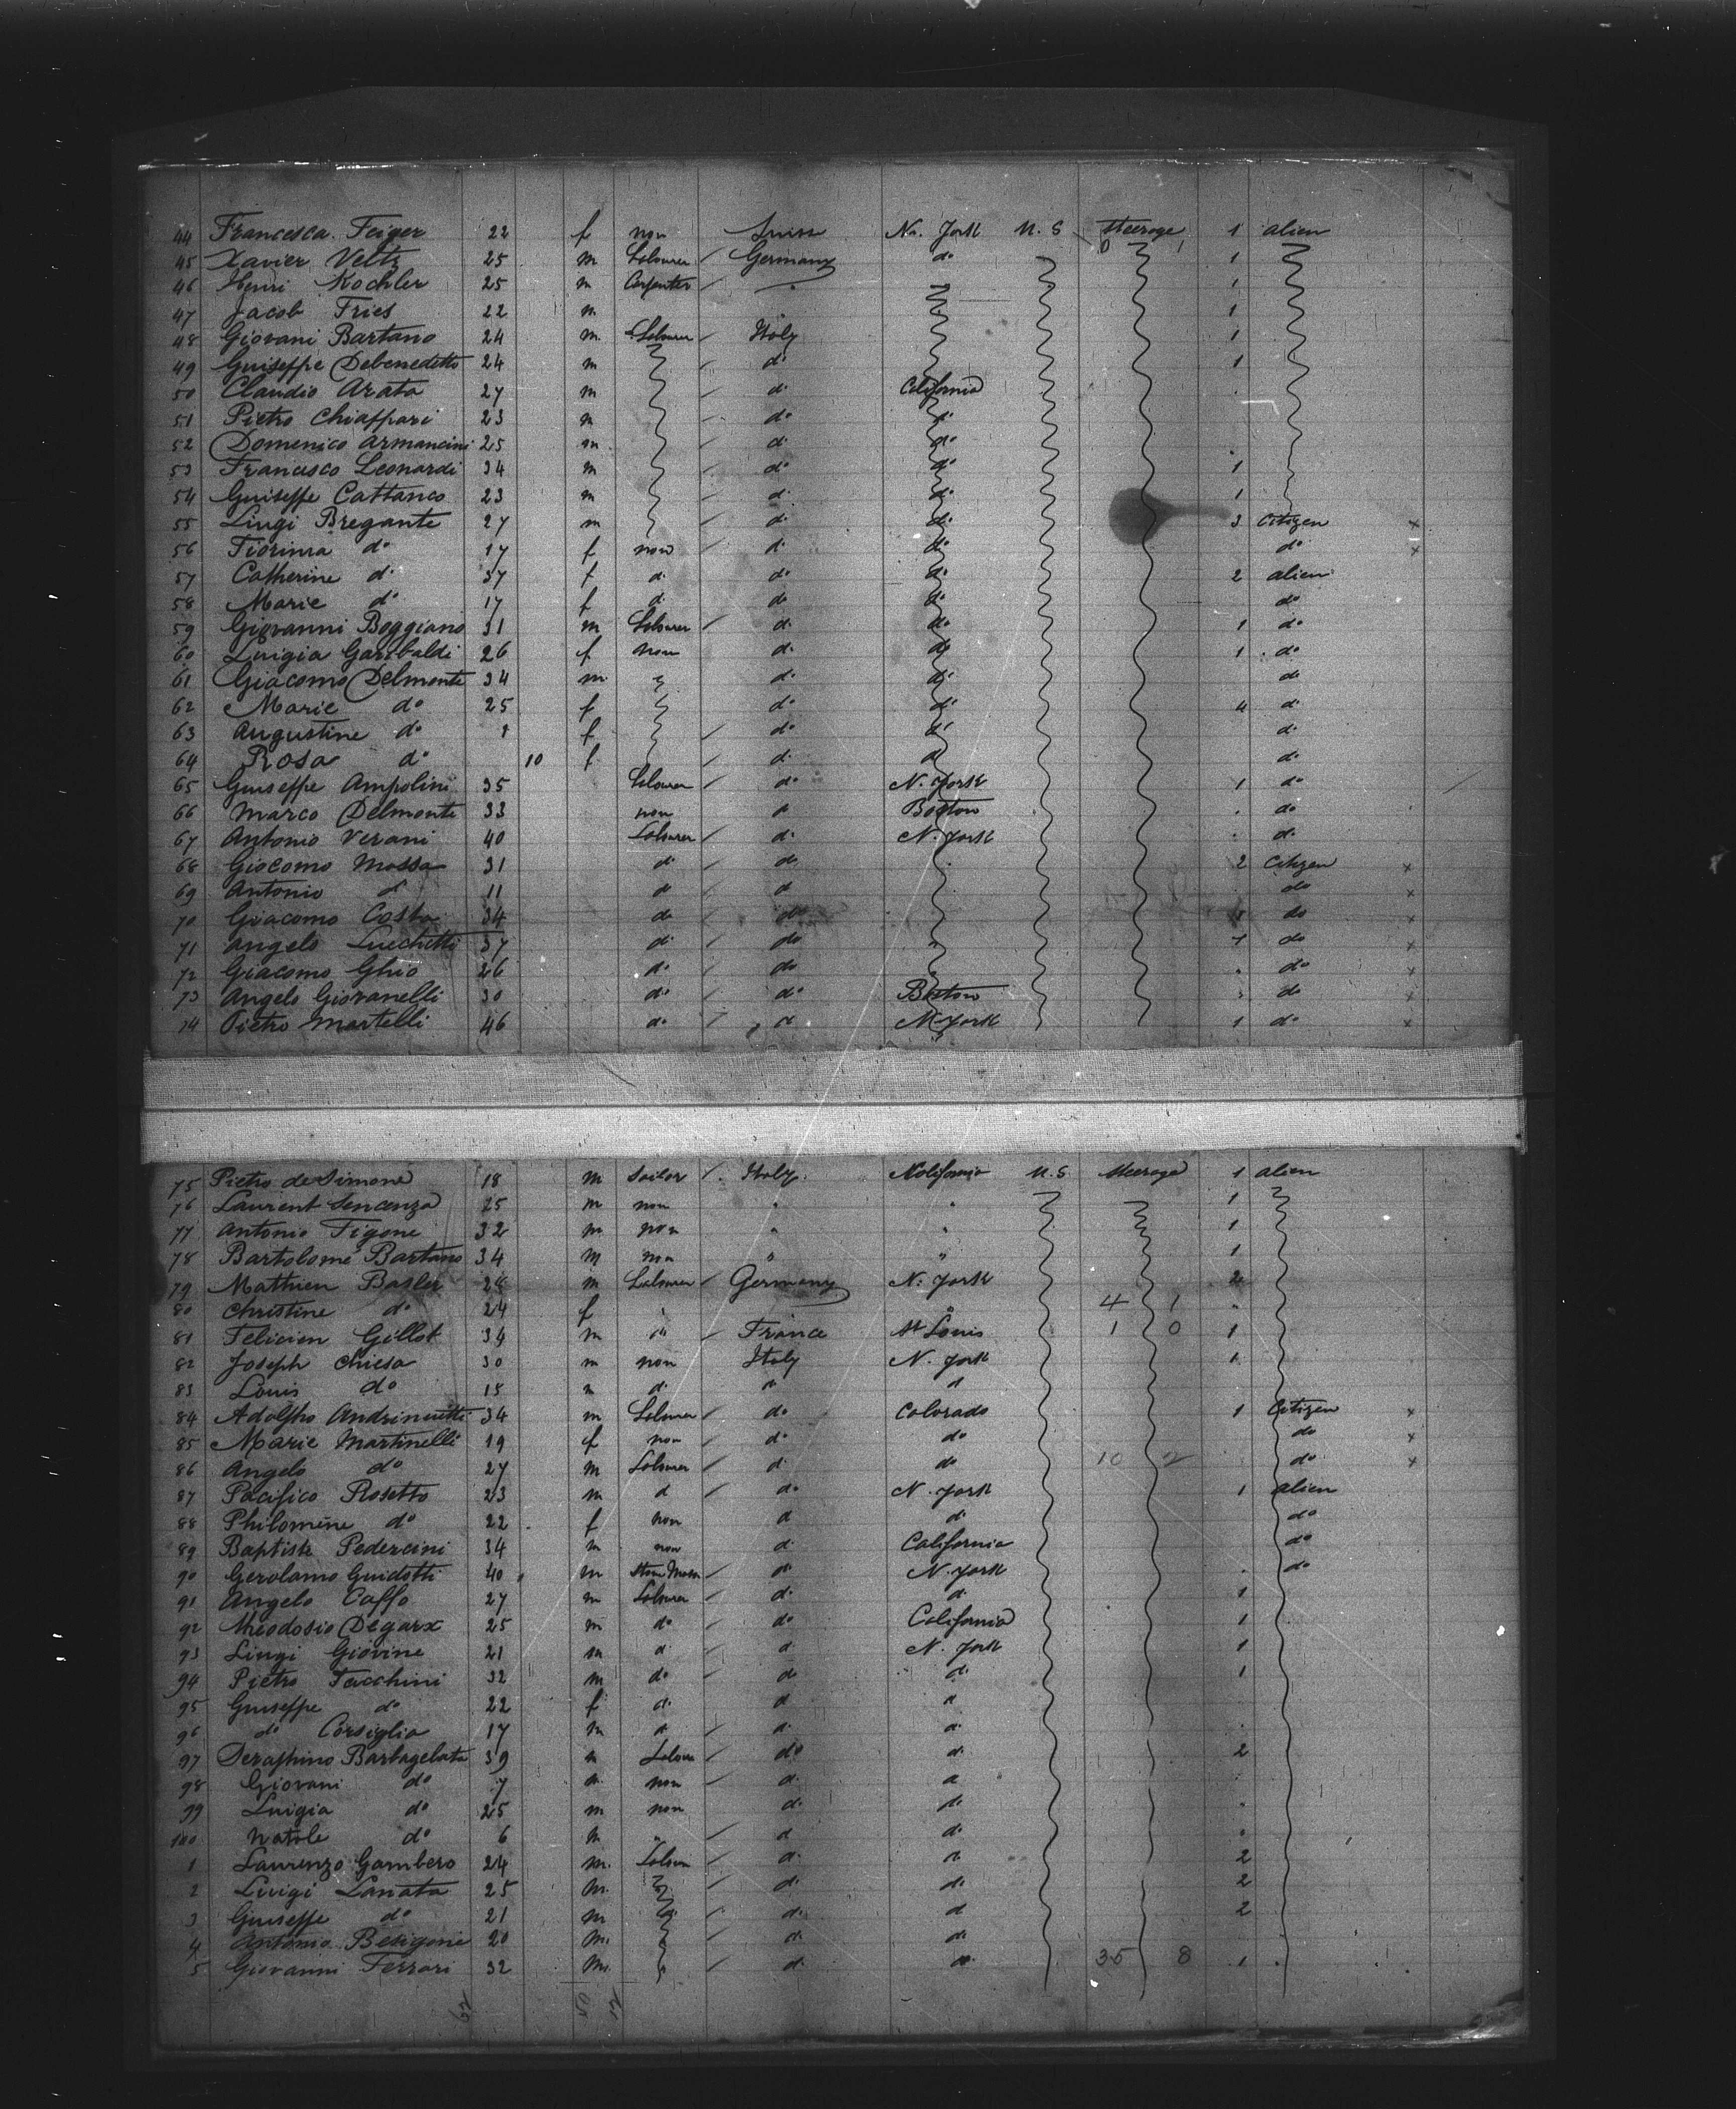 44 Francesca Feiger 22 f non Suisse N. York U. S Steerage 1 alien
45 Xavier Veltz 25 m Labourer Germany do 1
46 Henri Kochler 25 m Carpenter " 1
47 Jacob Fries 22 m 1
48 Giovani Bartano 24 m Labourer Italy 1
49 Guiseppe Debenedetto 24 m do 1
50 Claudio Arata 27 m do California
51 Pietro Chiappari 23 m do do
52 Domenico Armancini 25 m do do
53 Francisco Leonardi 34 m do do 1
54 Guiseppe Cattaneo 23 m do do 1
55 Luigi Bregante 27 m do do 3 Citizen x
56 Fiorinra do 17 f non do do do x
57 Catherine do 37 f do do do 2 alien
58 Marie do 17 f do do do do
59 Giovanni Boggiano 31 m Labourer do do 1 do
60 Luigia Garibaldi 26 f non do do 1 do
61 Giacomo Delmonte 34 m do do do
62 Marie do 25 f do do 4 do
63 Augustine do f do do do
64 Rosa do 10 f do do do
65 Guiseppe Ampolini 35 Labourer do N. York 1 do
66 Marco Delmonte 33 non do Boston do
67 Antonio Verani 40 Labourer do N. York do
68 Giocomo Massa 31 do do 2 Citizen x
69 Antonio do 11 do do do x
70 Giacomo Costa 34 do do do x
71 Angelo Luechetti 37 do do 1 do x
72 Giacomo Ghio 26 do do do x
73 Angelo Giovanelli 30 do do Boston do x
74 Pietro Martelli 46 do do N York 1 do x
75 Pietro de Simone 18 m Sailor Italy U. S. Steerage 1 alien
76 Laurent Sencenza 25 m non " " 1
77 Antonio Figone 32 m non " " 1
78 Bartolomé Bartano 34 m non " " 1
79 Mathieu Basler 28 m Labourer Germany N. York 2
80 Christine do 24 f " 4 1
81 Felicien Gillot 34 m " France St Louis 1 0 1
82 Joseph Chiesa 30 m non Italy N. York 1
83 Louis do 15 m do do do
84 Adolpho Andrinuitti 34 m Labourer do Colorado 1 Citizen x
85 Marie Martinelli 19 f non do do do x
86 Angelo do 27 m Labourer do do 10 2 do x
87 Pacifico Rosetto 23 m do do N. York 1 alien
88 Philomène do 22 f non do do do
89 Baptiste Pedercini 34 m non do California do
90 Gerolamo Guidotti 40 m Stone Mason do N. York do
91 Angelo Caffo 27 m Labourer do do 1
92 Theodosio Degarx 25 m do do California 1
93 Luigi Giovine 21 m do do N. York 1
94 Pietro Tacchini 32 m do do do 1
95 Guiseppe do 22 f do do do
96 do Corsiglia 17 m do do do
97 Seraphino Barbagelata 39 m Labour do do 2
98 Giovani do 7 m non do do
99 Luigia do 25 m non do do
100 Natale do 6 m " do do
1 Laurenzo Gambero 24 m. Labour do do 2
2 Luigi Lanata 25 m. do do 2
3 Guiseppe do 21 m do do 2
4 Antonio Besigonie 20 m. do do
5 Giovanni Ferrari 32 m. do do 35 8 1